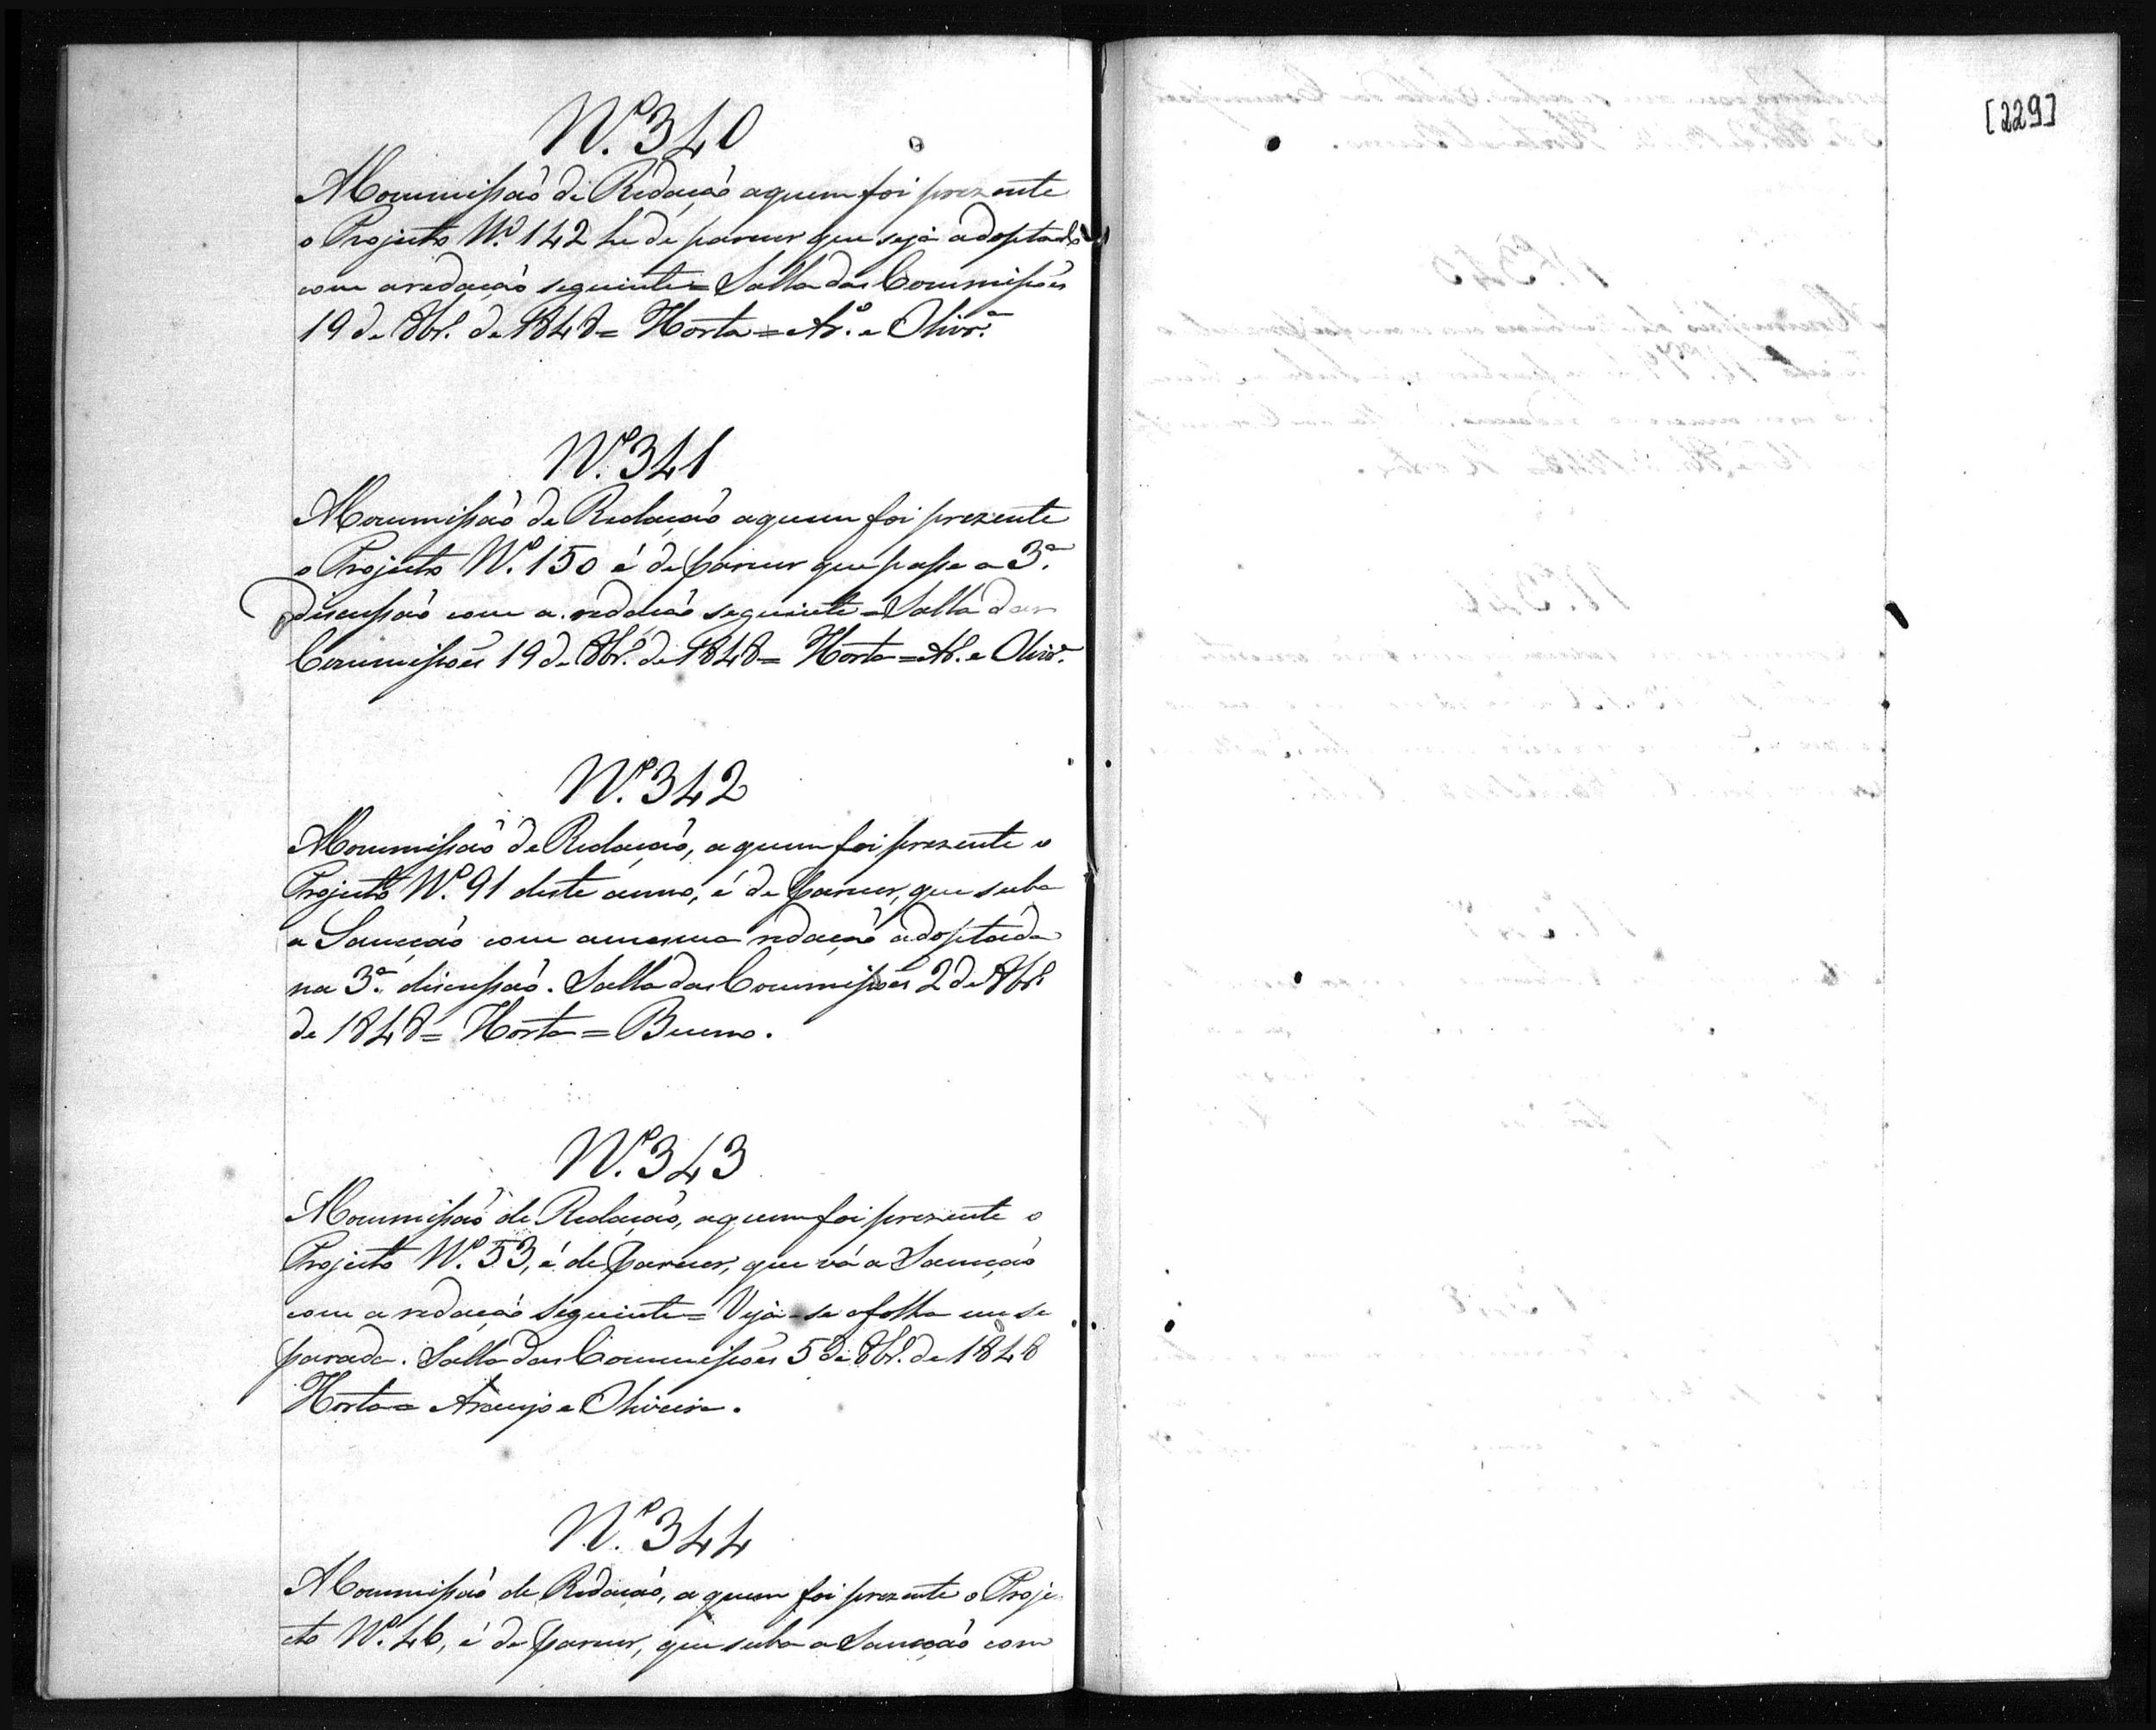 Nº 340
A Commissaõ de Redaçaõ a quem foi prezente
o Projecto Nº 142 he de parecer que seja adoptado
com a redaçaõ seguinte = Salla das Commissoẽs
19 de 8brº de 1848 = Horta = Arº e Olivrª
Nº 341
A Commissaõ de Redacçaõ a quem foi prezente
o Projecto Nº 150 é de parecer que passe a 3ª
discussaõ com a redacaõ seguinte = Salla das
Commissoẽs 19 de 8brº de 1848 = Horta = Ar. e Olivrª
Nº 342
A Commissaõ de Redacçaõ, a quem foi prezente o
Projecto Nº 91 deste anno, é de parecer, que suba
a Sancçaõ com a mesma redacçaõ adoptada
na 3ª discussaõ. Salla das Commissoẽs 2 de 8brº
de 1848 = Horta = Bueno.
Nº 343
A Commissaõ de Redacçaõ, a quem foi prezente o
Projecto Nº 53, é de parecer, que vá a Sancçaõ
com a redacçaõ seguinte = Veja-se a folha em se
parado. Salla das Commissoẽs 5 de 8brº de 1848
Horta = Araujo e Oliveira.
Nº 344
A Commissaõ de Redacçaõ, a quem foi prezente o Proje
cto Nº 46, é de parecer, que suba a Sancçaõ com
[229]